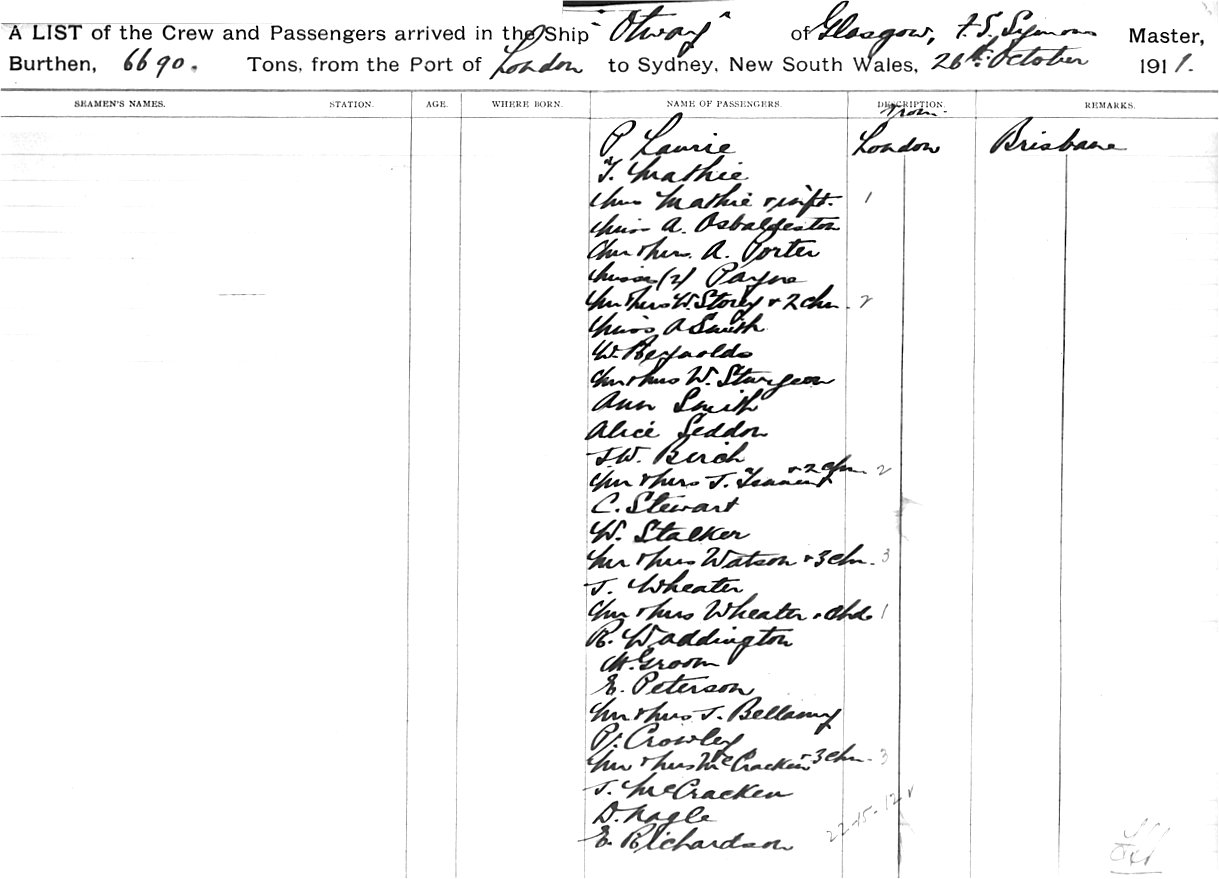 A LIST of the Crew and Passengers arrived in the Ship "Otway" of Glasgow, F. S. Symons Master,
Burthen, 6690. Tons, from the Port of London to Sydney, New South Wales, 26th October 1911.
SEAMEN'S NAMES. STATION. AGE. WHERE BORN. NAME OF PASSENGERS. DESCRIPTION. REMARKS.
From
P. Laurie London Brisbane
T. Mathie
Mrs Mathie & inft. 1
Miss A. Osbaldeston
Mr & Mrs. A. Porter
Misses (2) Payne
Mr & Mrs W. Storey & 2 chn. 2
Miss A Smith
W. Reynolds
Mr & Mrs W. Sturgeon
Ann Smith
Alice Seddon
J.W. Birch
Mr & Mrs J. Tennent & 2 chn. 2
C. Stewart
W. Stalker
Mr & Mrs Watson & 3 chn. 3
J. Wheater
Mr & Mrs Wheater & chd 1
R. Waddington
M. Groom
E. Peterson
Mr & Mrs J. Bellamy
P. Crowley
Mr & Mrs McCracken & 3 chn. 3
J. McCracken
D. Nagle
E. Richardson 22-15-12